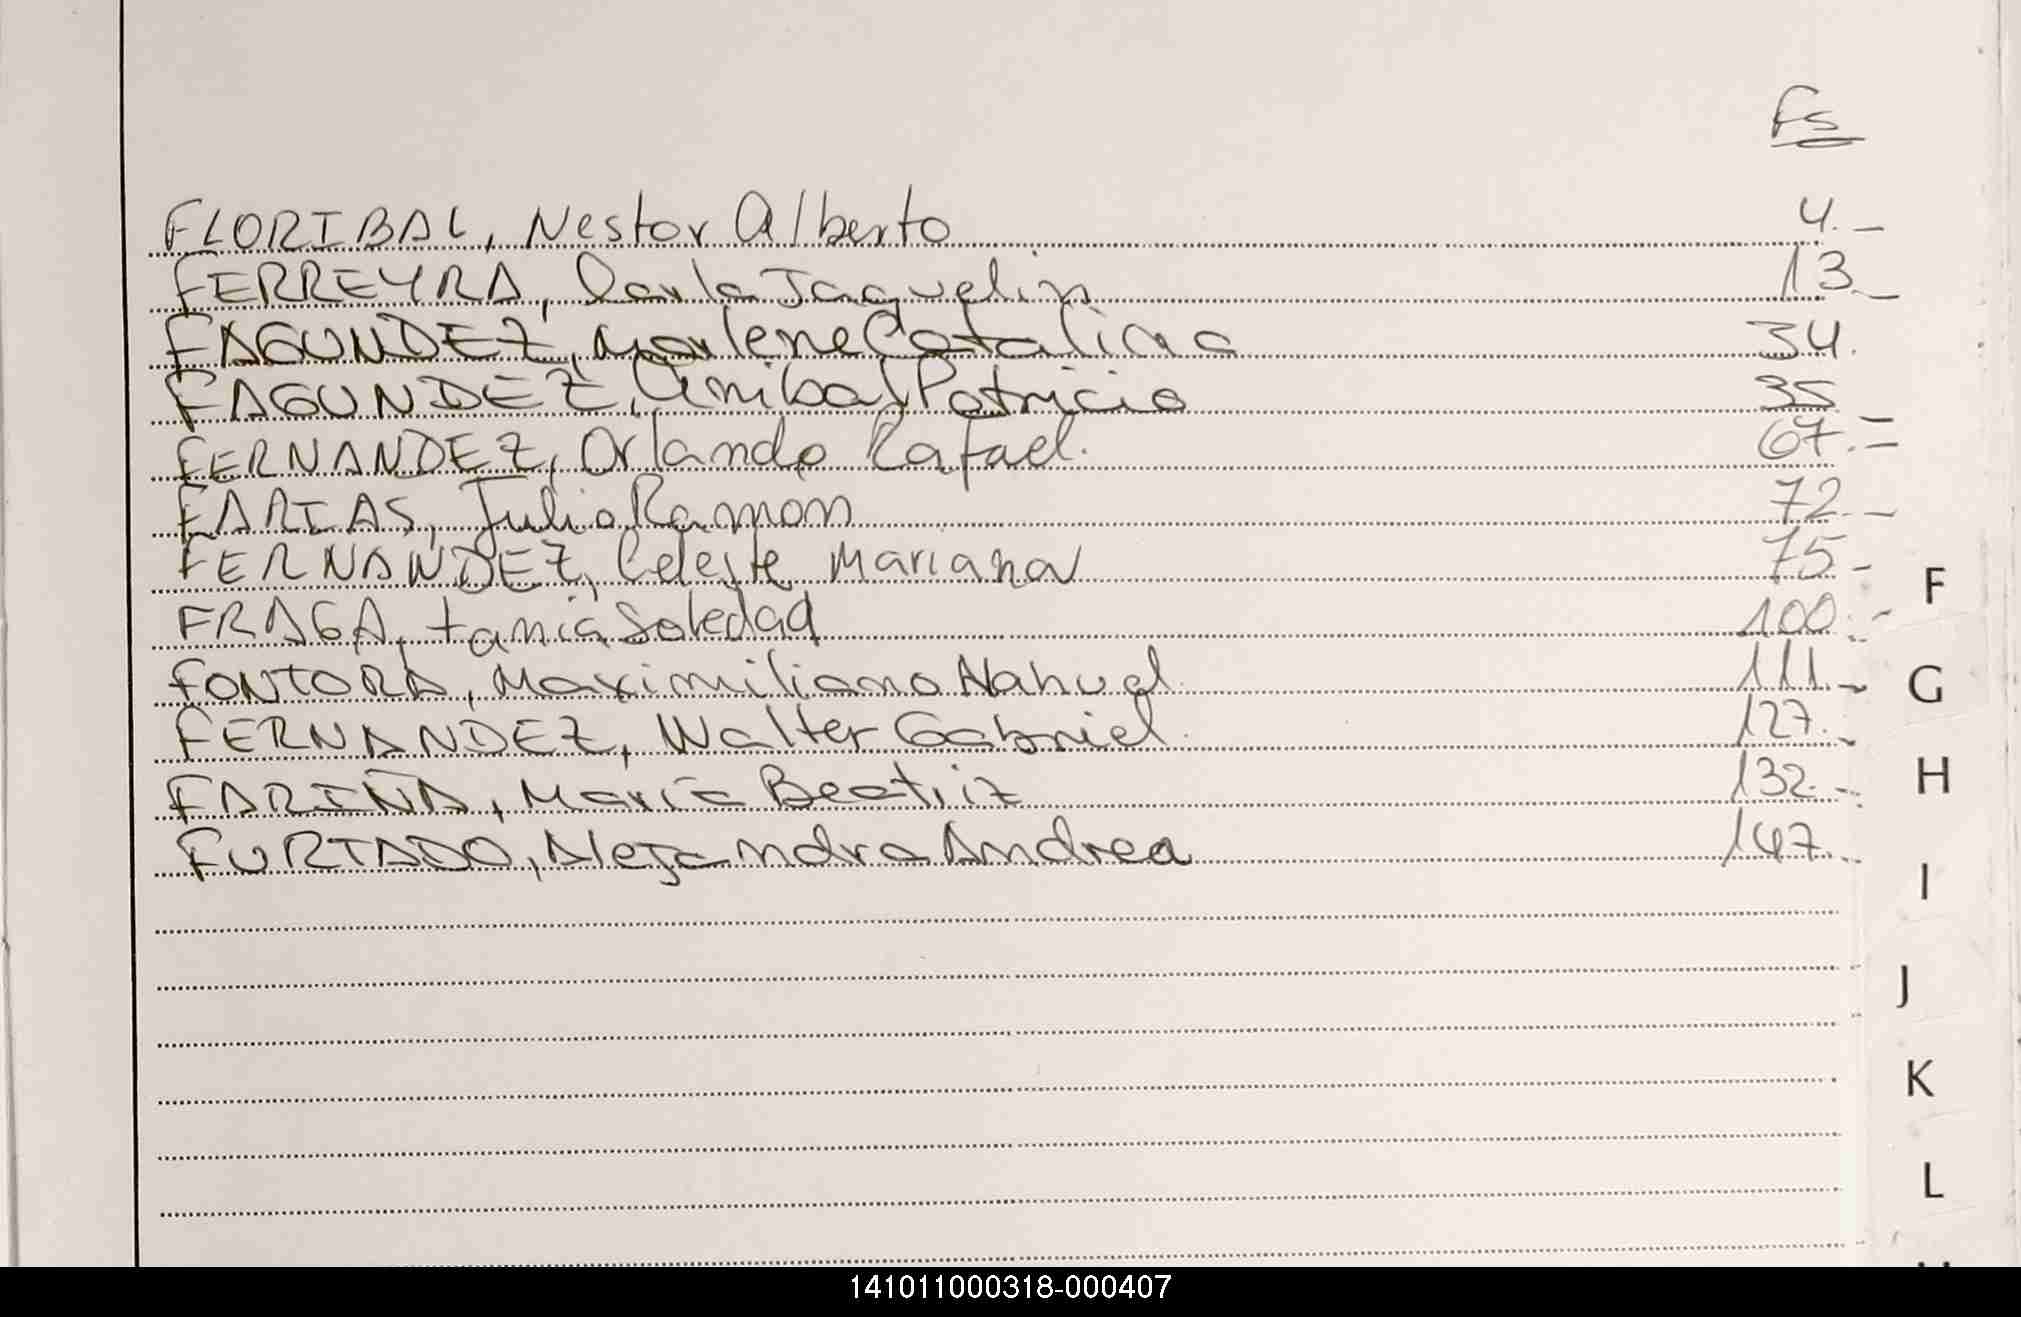 Fs
FLORIBAL, Nestor Alberto 4.-
FERREYRA, Carla Jaquelin 13.-
FAGUNDEZ, Marlene Catalina 34.
FAGUNDEZ, Anibal Patricio 35
FERNANDEZ, Orlando Rafael. 67.=
FARIAS, Julio Ramon 72.-
FERNANDEZ, Celeste Mariana 75-
FRAGA, tania Soledad 100.-
FONTORA, Maximiliano Nahuel 111.-
FERNANDEZ, Walter Gabriel. 127.-
FARIÑA, Maria Beatriz 132.-
FURTADO, Alejandra Andrea 147.-
F
G
H
I
J
K
L
141011000318-000407